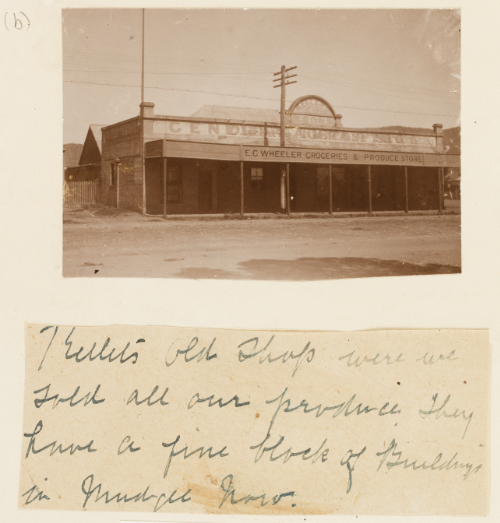 (b)
E.C WHEELER GROCERIES & PRODUCE STORE
Kellets old Shop were we
sold all our produce They
have a fine block of Buildings
in Mudgee Now.